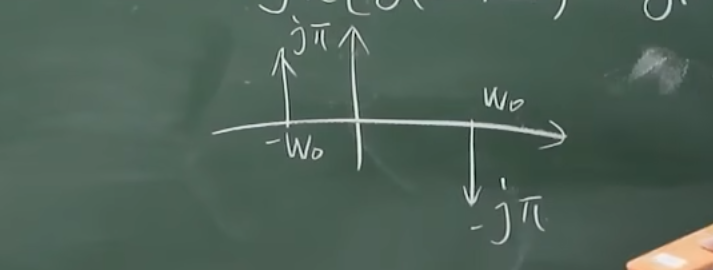 jπ
W₀
-W₀
-jπ